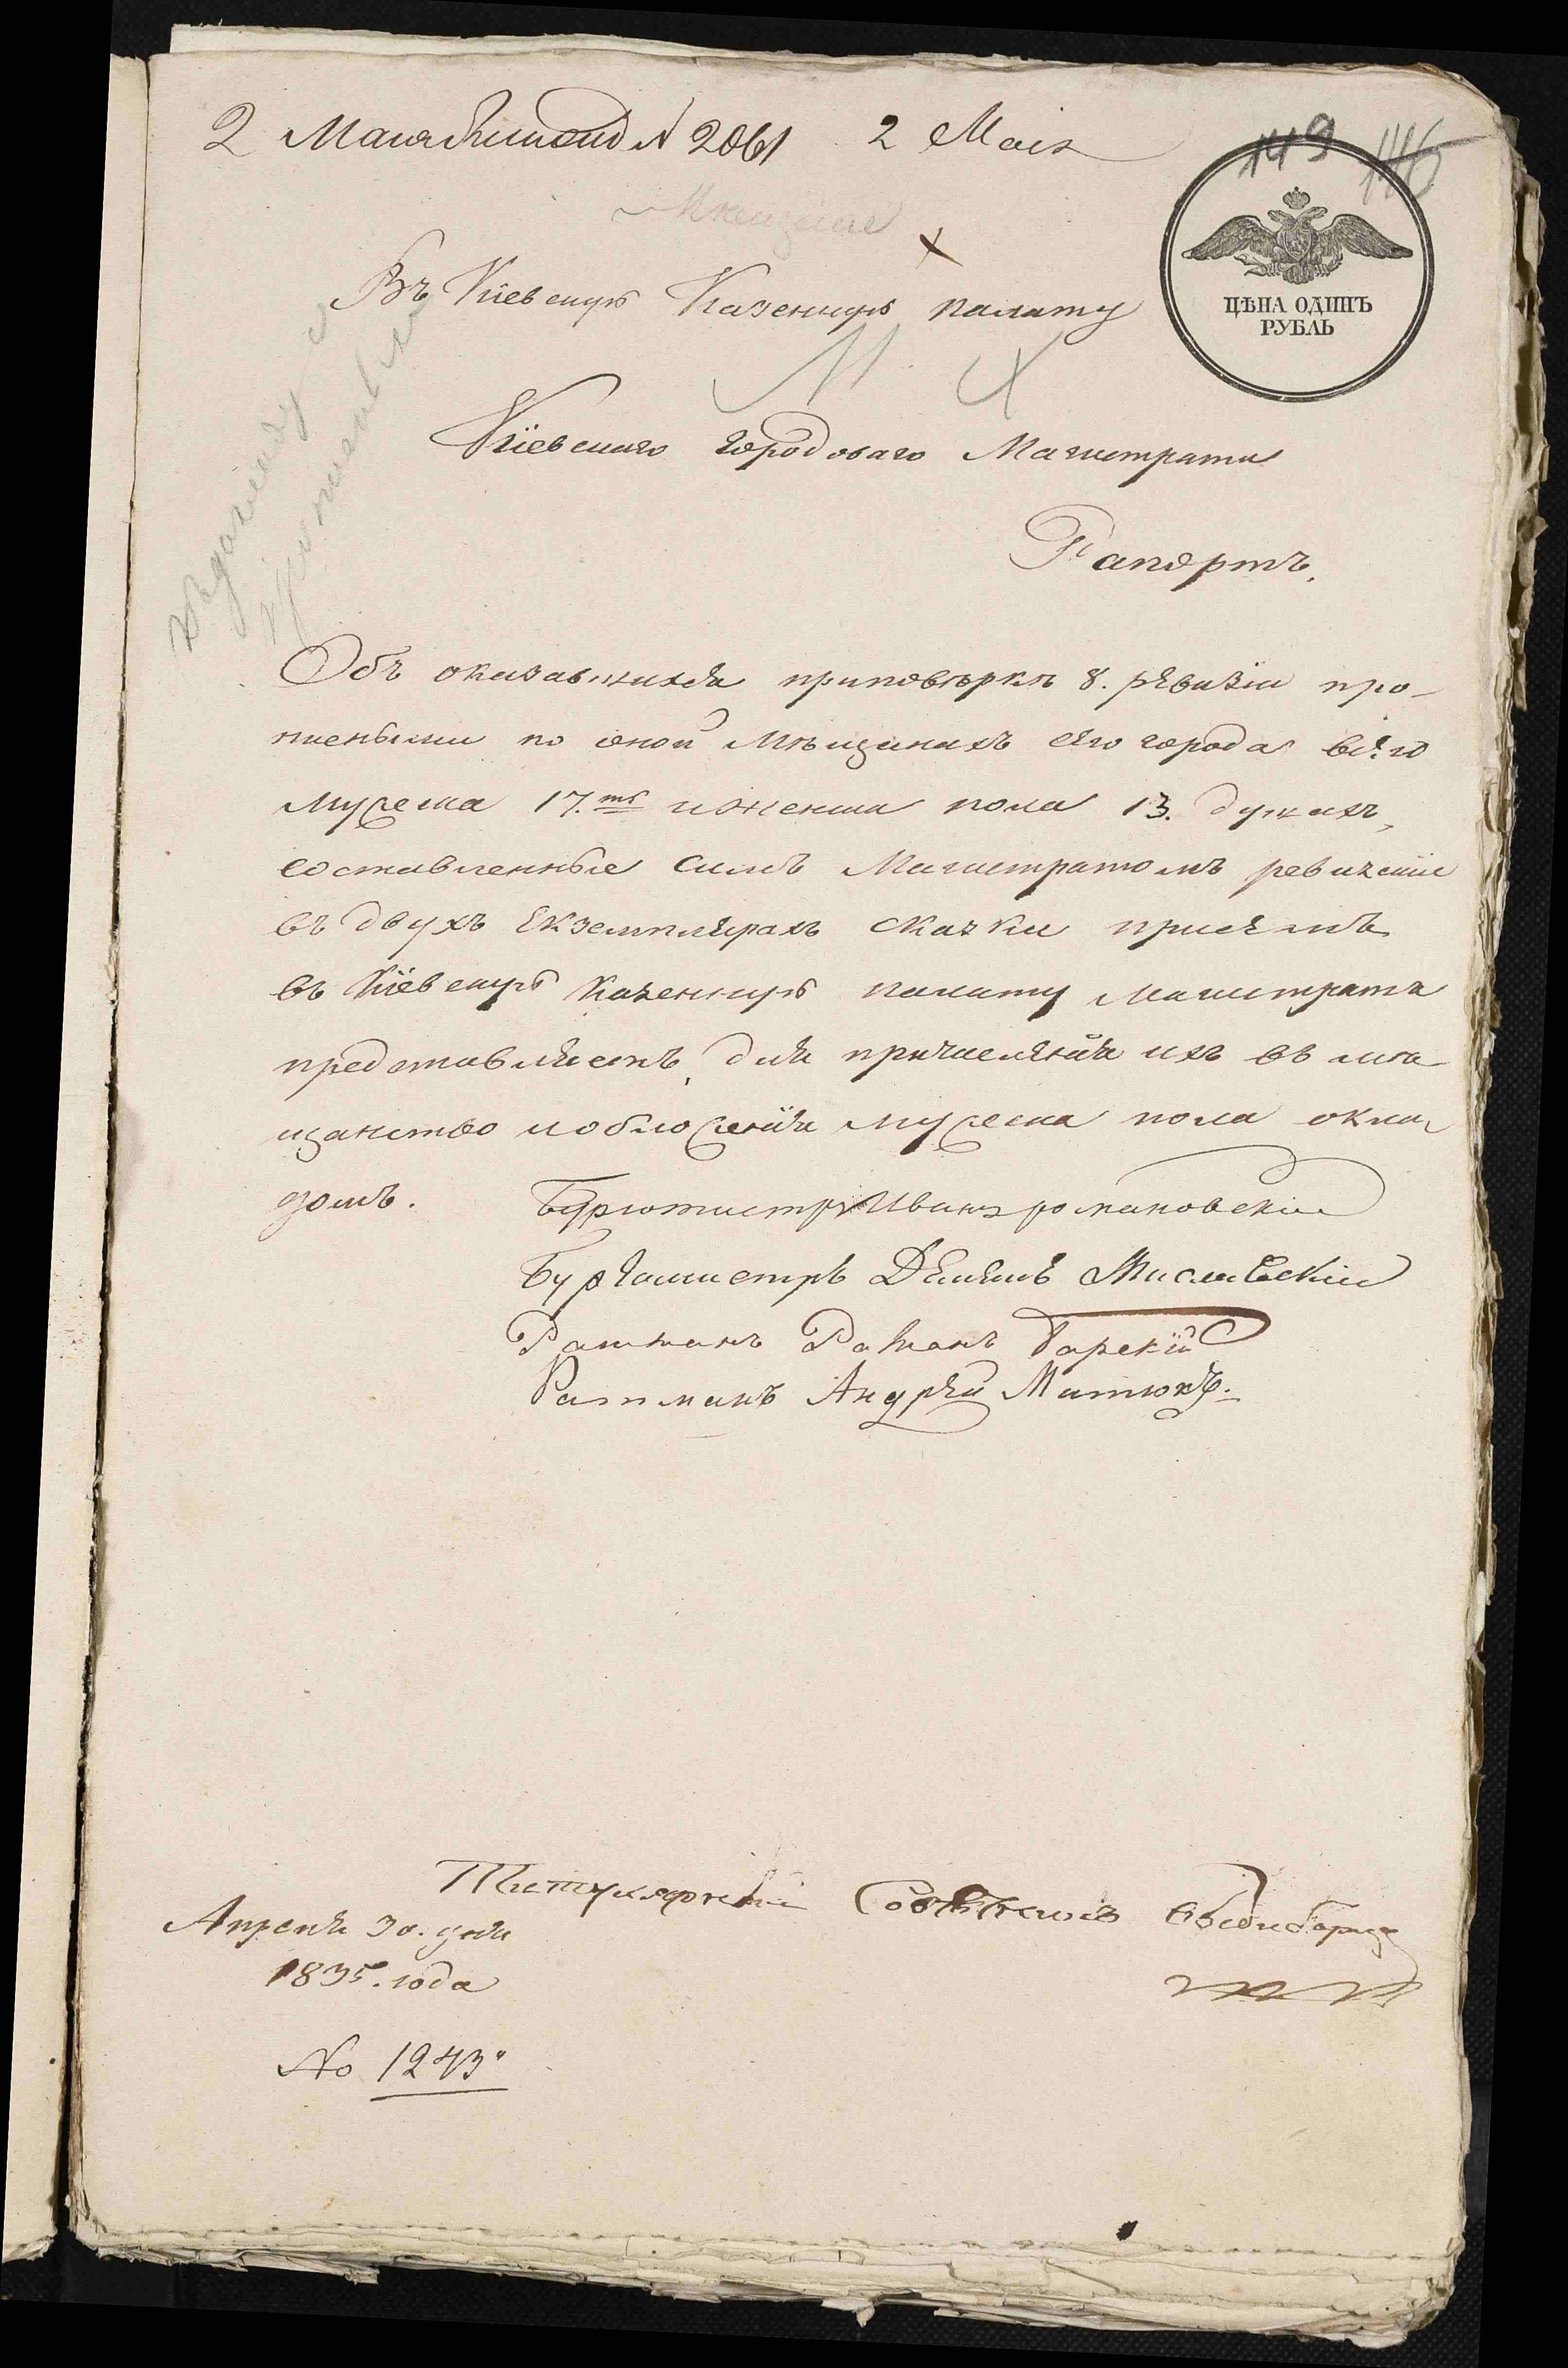 2 Мая № 2061 2 Маія
149 146
ЦѢНА ОДИНЪ
РУБЛЬ
Въ Кіевскую Казенную палату
Кіевскаго городоваго Магистрата
Рапортъ,
Объ оказавшихся приповѣркѣ 8. рѣвизіи про-
пиеными по оной Мѣщанахъ сего города всего
мужеска 17.ть иженска пола 13. душахъ,
составленные симъ Магистратомъ ревизскіе
въ двухъ Екземплярахъ сказки присемъ
въ Кіевскую Казенную палату Магистратъ
представляетъ, для причисленія ихъ въ мѣ-
щанство иобложенія мужеска пола окла-
домъ.
Бургомистръ Иванъ романовскій
Бургомистръ Демянъ Мислевскій
Ратманъ Романъ Барскій
Ратманъ Андрей Митюкъ.
Титулярный Совѣтникъ
Апреля 30. дня
1835. года
No 1243